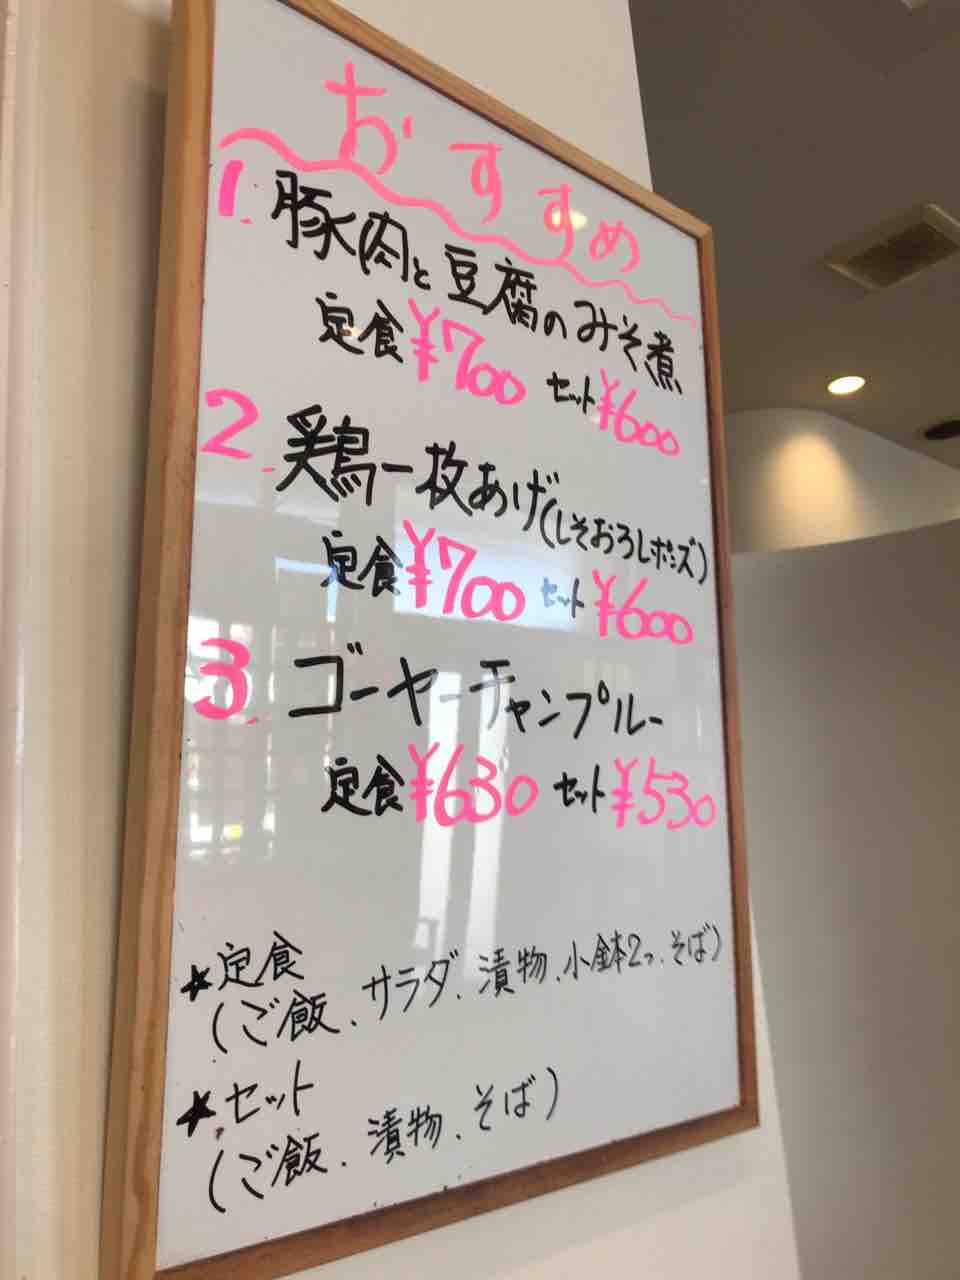 おすすめ
1. 豚肉と豆腐のみそ煮
定食¥700 セット¥600
2. 鶏一枚あげ(しそおろしポンズ)
定食¥700 セット¥600
3. ゴーヤーチャンプルー
定食¥630 セット¥530
★定食
(ご飯、サラダ、漬物、小鉢2つ、そば)
★セット
(ご飯、漬物、そば)